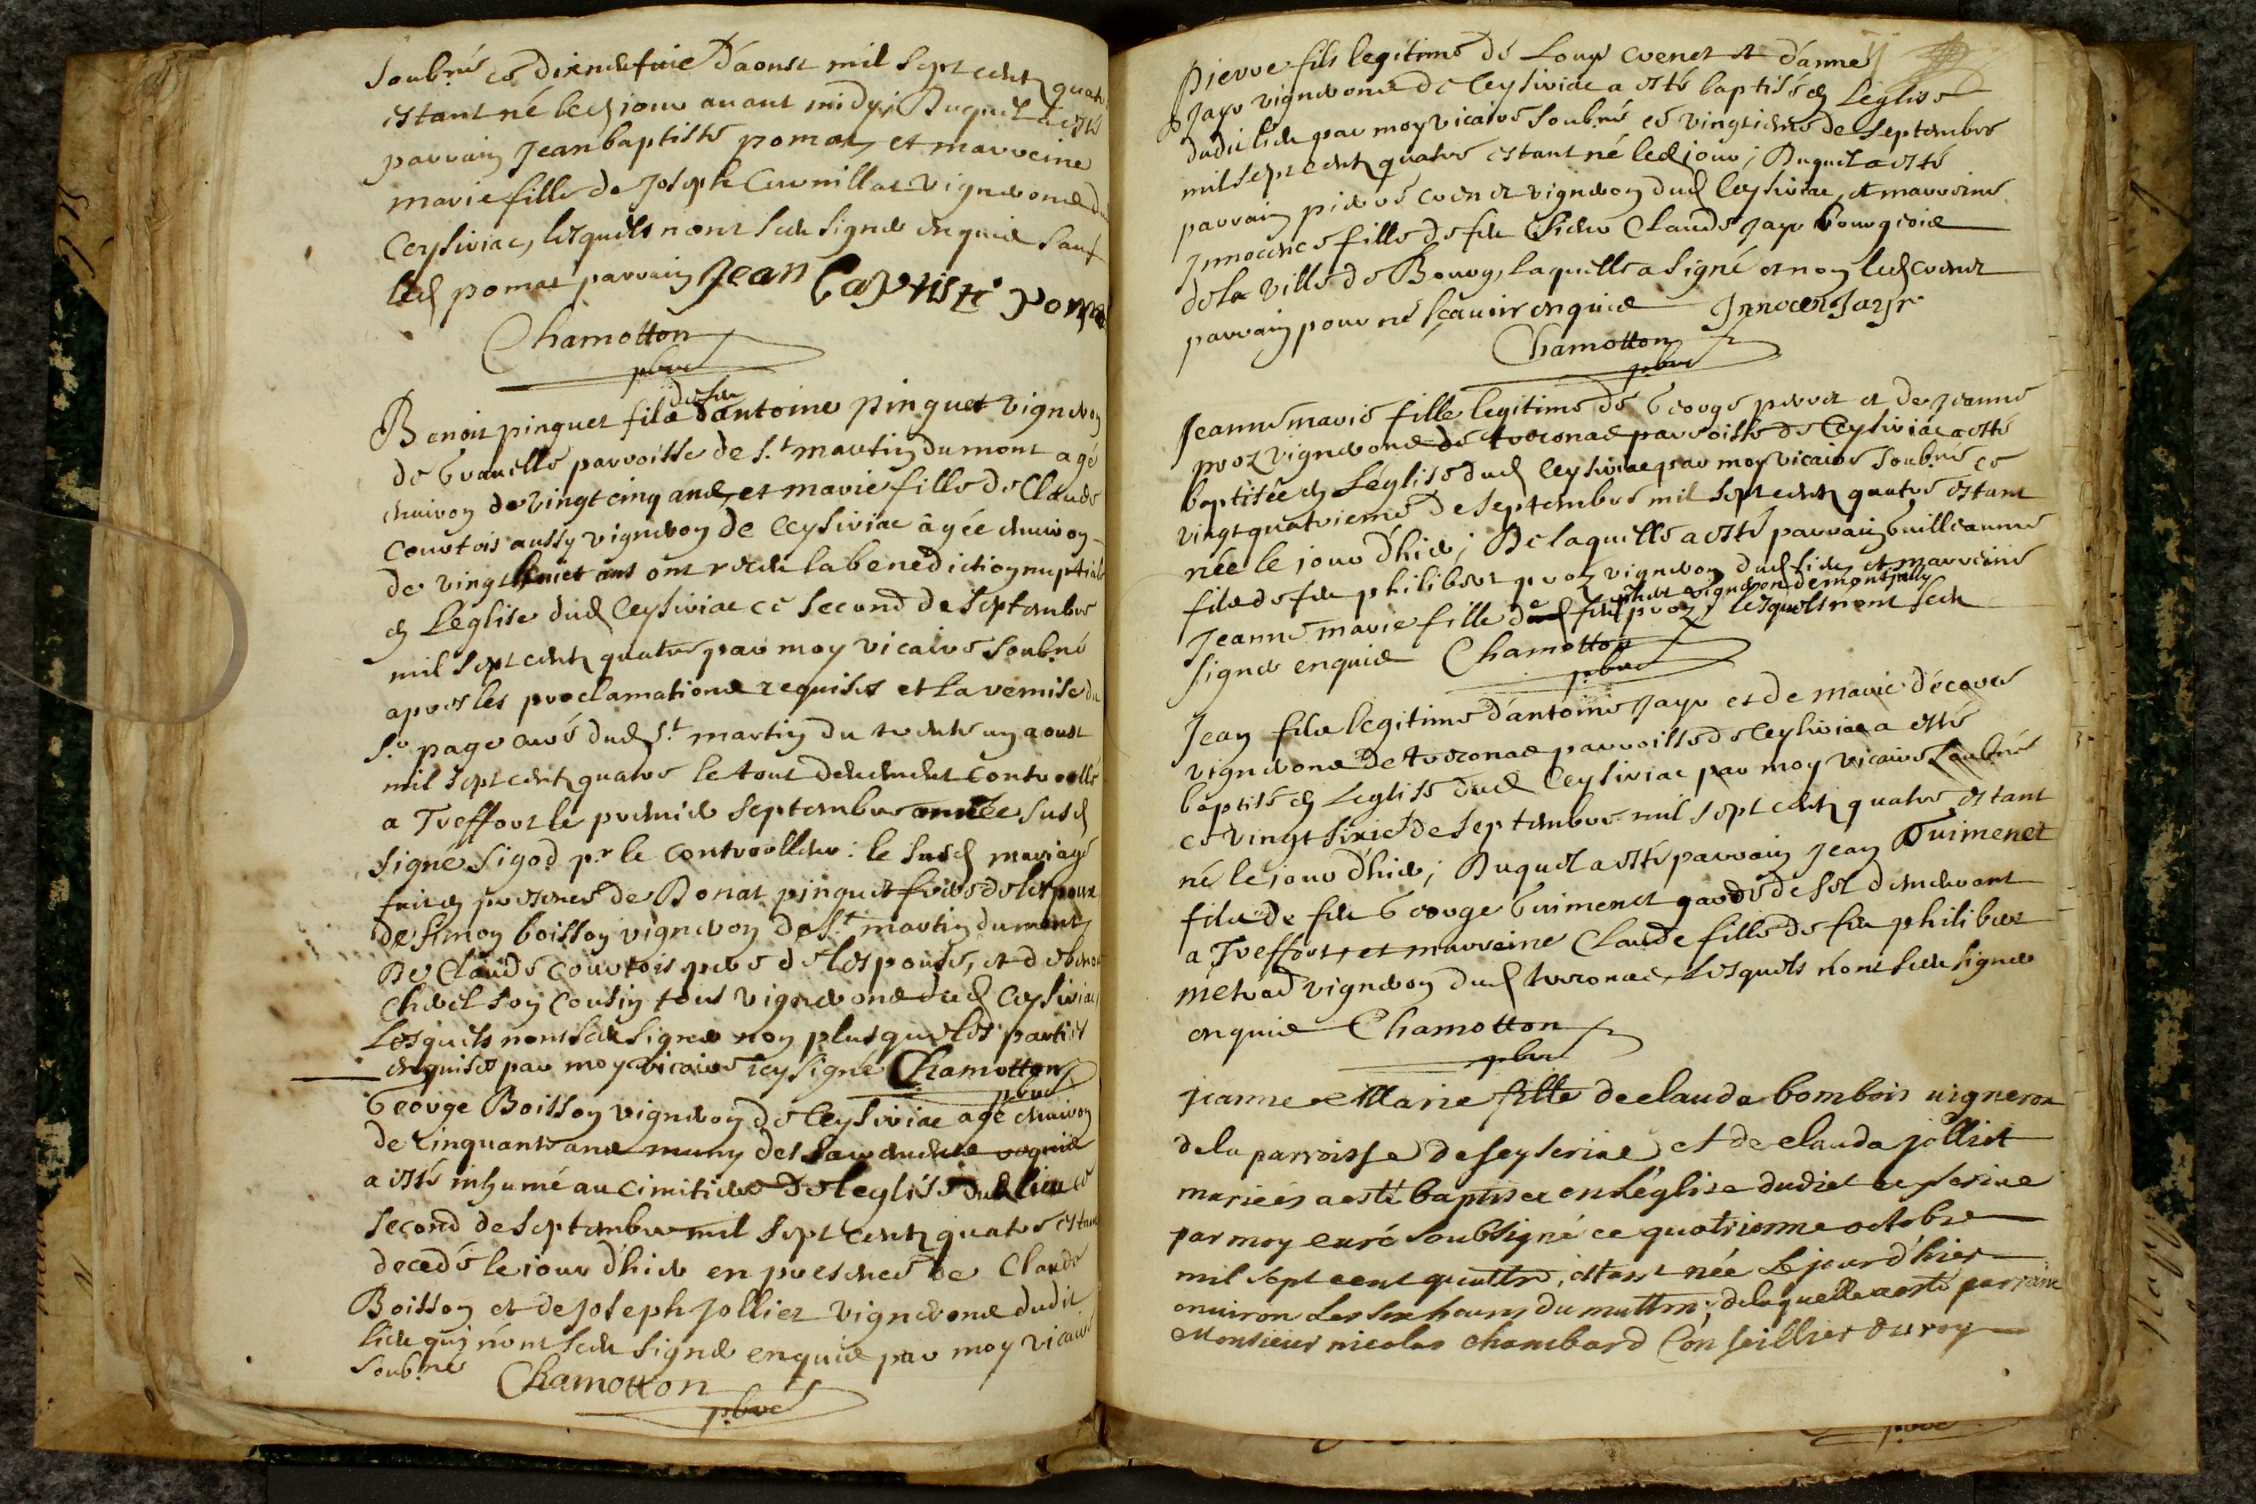 soub.né ce dixneufuie d'aoust mil sept cents quatr
estant né led jour auant midy; Duquel a esté
parrain Jean baptiste pomat, et marreine
marie fille de Joseph Curnillat vignerons du
Ceysiriac, lesquels n'ont sceu signer enquis sauf
led pomat parrain Jean baptiste poma
Chamotton
pbre
de feu
Benoit pinguet fils d'antoine pinguet vigneron
de Grauelle parroisse de S.t martin du mont agé
enuiron de vingt cinq ans, et marie fille de Claude
Courtois aussy vigneron de Ceysiriac âgée enuiron
de vingt huict ans ont receu la benediction nuptiale
en Leglise dud Ceysiriac ce second de septembre
mil sept cents quatre par moy vicaire soub.né
apres les proclamations requises et la remise du
S.r page curé dud S.t martin du trente un aoust
mil sept cents quatre le tout deuement controollé
a Treffort le premier septembre année susd
signé Sigod p.r le controolleur: le susd mariage
fait en presence de Donat pinguet frere de lespoux
de simon boisson vigneron de S.t martin du mont,
De Claude Courtois pere de lespouse, et de benoit
Chdel son cousin tous vignerons dud Ceysiriac,
Lesquels n'ont sceu signer non plus que les parties
enquises par moy vicaire icy signé Chamotton
pbre
George Boisson vigneron de Ceysiriac agé enuiron
de cinquante ans muny des sacrements requis
a esté inhumé au cimitiere de leglise dud lieu ce
second de septembre mil sept cents quatre estant
decedé le iour d'hier en presence de Claude
Boisson et de Joseph Jollier vignerons dudit
lieu qui n'ont sceu signer enquis par moy vicaire
soub.né Chamotton
pbre
Pierre fils legitime de Louys Cuenet et d'anne
Jayr vignerons de Ceysiriac a esté baptisé en Leglise
dudit lieu par moy vicaire soub.né ce vingtieme de septembre
mil sept cents quatre estant né led jour; Duquel a esté
parrain pierre Cuenet vigneron dud Ceysiriac, et marreine
Innocence fille de feu Sieur Claude Jayr bourgeois
de la ville de Bourg, laquelle a signé et non led Cuenet
parrain pour ne sçauoir enquis Innocen Jayr
Chamotton
pbre
Jeanne marie fille legitime de George perret et de Jeanne
proz vignerons de troconas parroisse de Ceysiriac a esté
baptisée en Léglise dud Ceysiriac par moy vicaire soub.né ce
vingt quatrieme de septembre mil sept cents quatre estant
née le jour d'hier; De laquelle a esté parrain Guilleaume
fils de feu philibert proz vigneron dud lieu, et marreine
vigneron de montjuly
Jeanne marie fille de feu proz, lesquels n'ont sceu
signer enquis Chamotton
pbre
Jean fils legitime d'antoine Jayr et de marie d'écores
vignerons de troconas parroisse de Ceysiriac a esté
baptisé en Leglise dud Ceysiriac par moy vicaire soub.né
ce vingt sixie de septembre mil sept cents quatre estant
né le jour d'hier; Duquel a esté parrain Jean Guimenet
fils de feu George Guimenet garde de sel demeurant
a Treffort, et marreine Claude fille de feu philibert
métrad vigneron dud troconas, Lesquels n'ont sceu signer
enquis Chamotton
pbre
jeanne Marie fille de claude bombois uigneron
de la parroisse de seyserine et de clauda jolliet
mariées a esté baptisee en l'église dudict ceyserine
par moy curé soubsigné ce quatrienme octobre
mil sept cent quattre, estant née Le jour d'hier
enuiron les six heures du mattin; de laquelle a esté parrain
Monsieur nicolas chambard Conseillier du roy